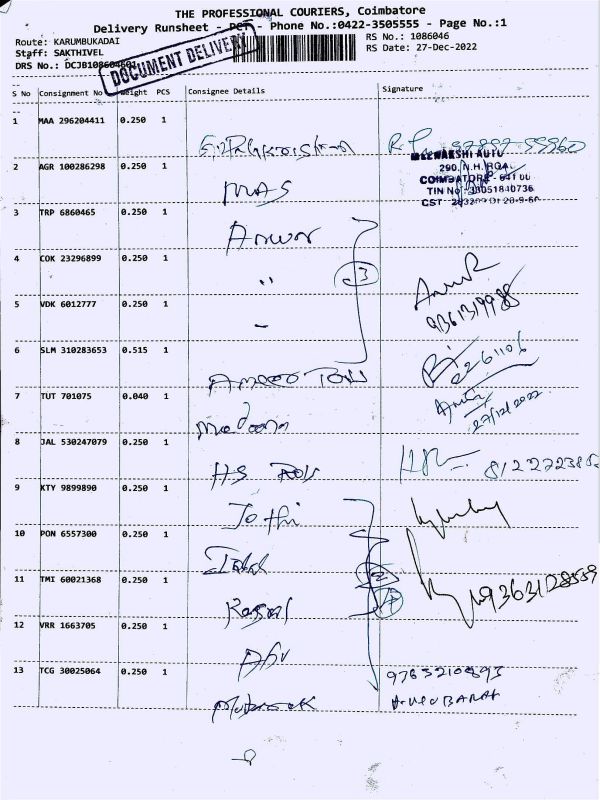 THE PROFESSIONAL COURIERS, Coimbatore
Delivery Runsheet - PCT - Phone No.:0422-3505555 - Page No.:1
Route: KARUMBUKADAI
RS No.: 1086046
Staff: SAKTHIVEL
RS Date: 27-Dec-2022
DRS No.: DCJB108604601
DOCUMENT DELIVERY
S No Consignment No Weight PCS Consignee Details Signature
1 MAA 296204411 0.250 1
MEENAKSHI AUTO
2 AGR 100286298 0.250 1
290, N.H. ROAD
COIMBATORE - 641 00
MAS
TIN No
3 TRP 6860465 0.250 1
CST
Anwar
4 COK 23296899 0.250 1
"
3
5 VDK 6012777 0.250 1
-
9361319988
6 SLM 310283653 0.515 1
2261106
7 TUT 701075 0.040 1
27/12/2022
Madona
8 JAL 530247079 0.250 1
HS
9 KTY 9899890 0.250 1
Jothi
10 PON 6557300 0.250 1
11 TMI 60021368 0.250 1
12 VRR 1663705 0.250 1
Abu
13 TCG 30025064 0.250 1
Mubarak